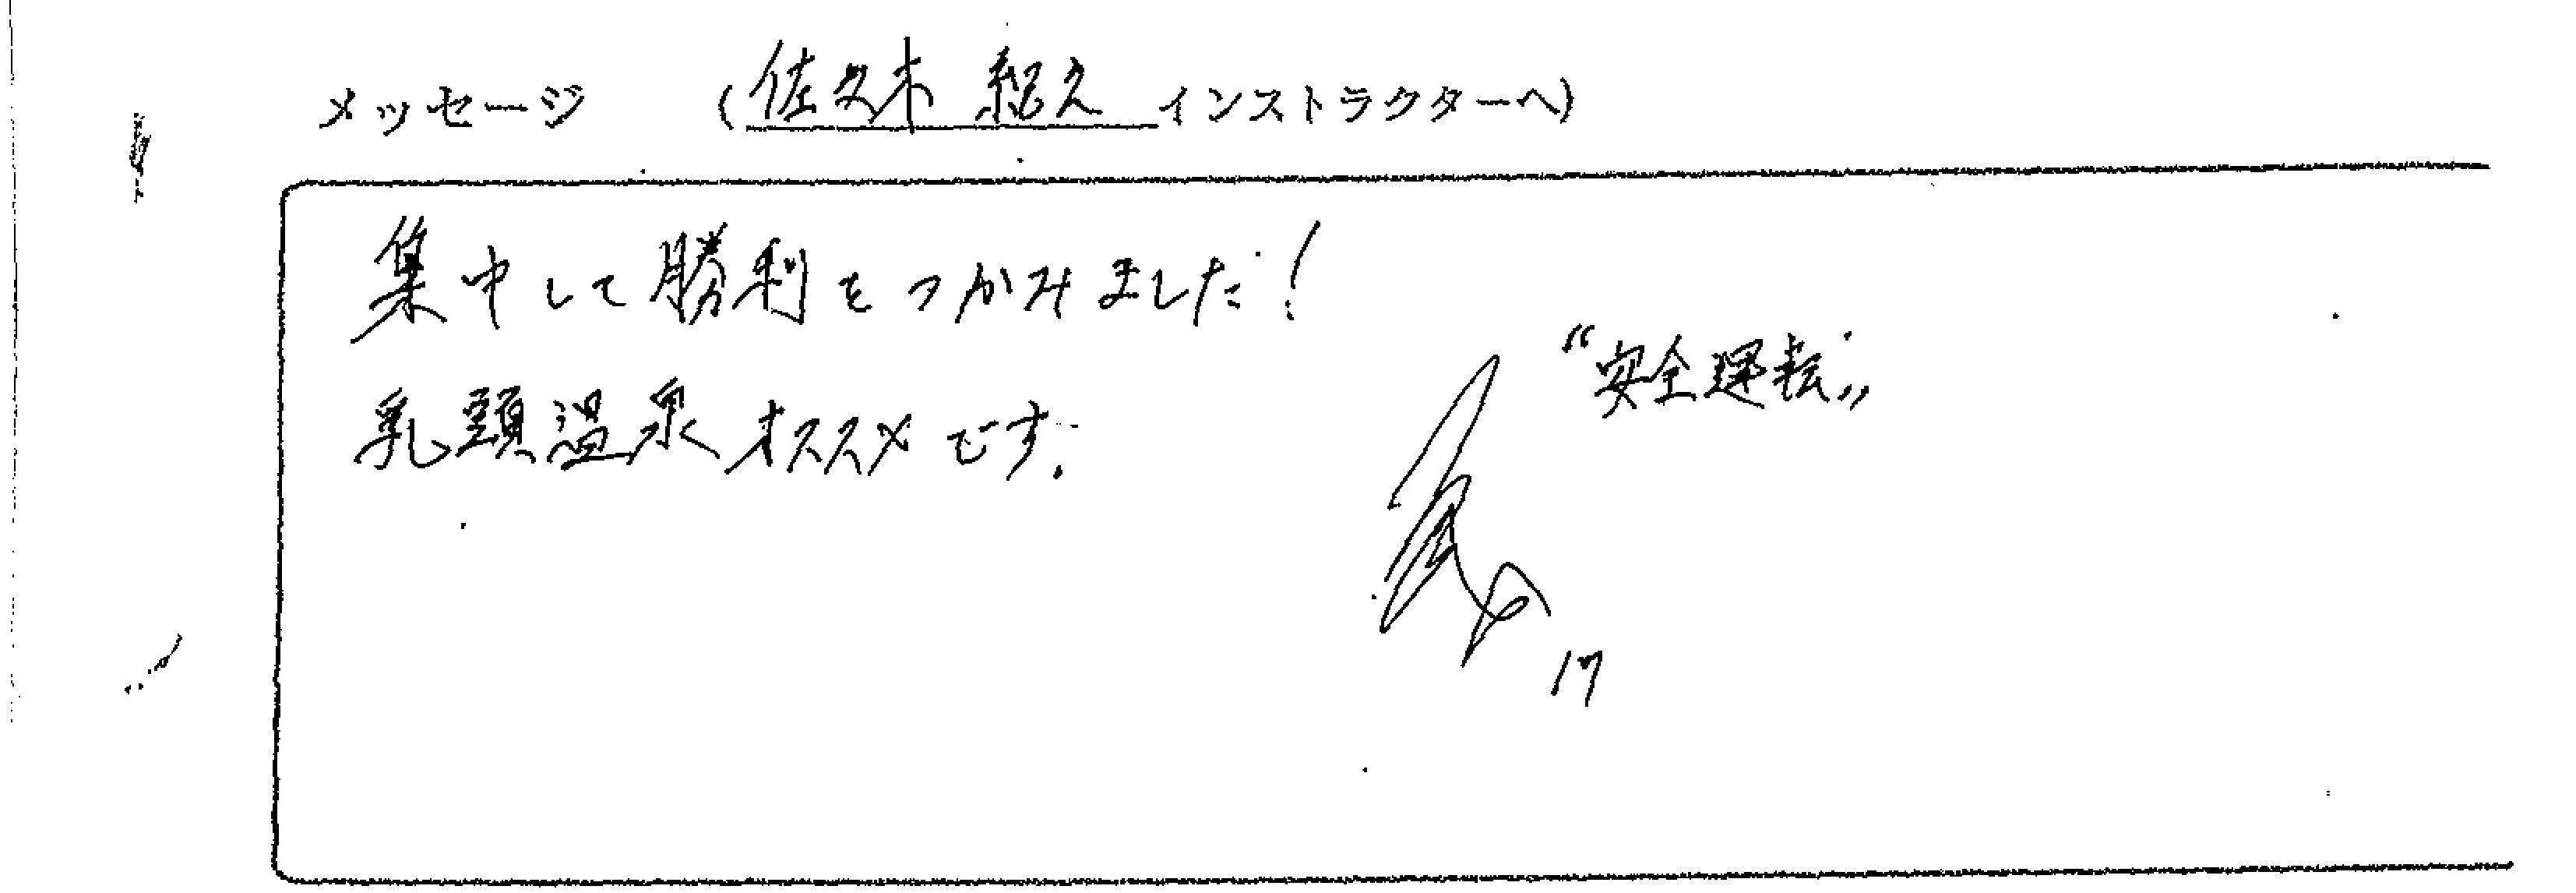 メッセージ (佐々木 紹久 インストラクターへ)
集中して勝利をつかみました!
乳頭温泉オススメです.
"安全運転"
17